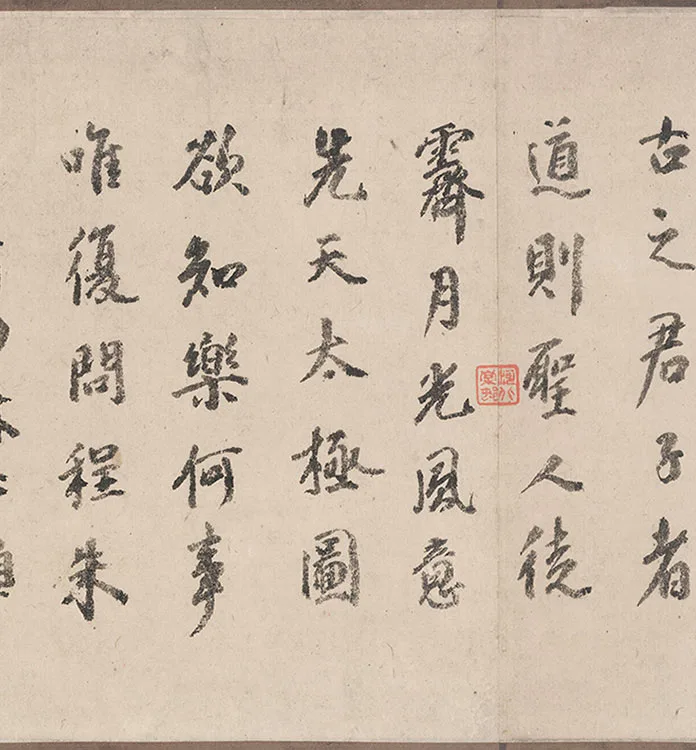 古之君子者
道則聖人徒
霽月光風意
先天太極圖
欲知樂何事
唯復問程朱